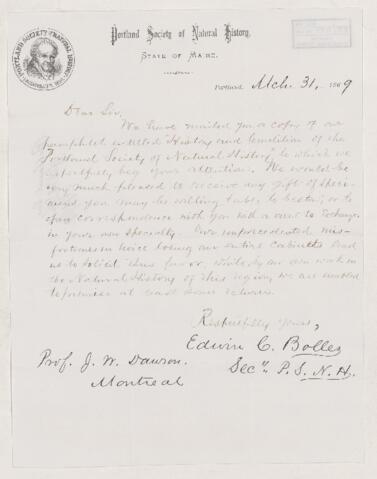 PORTLAND SOCIETY NATURAL HISTORY
Portland Society of Natural History,
STATE OF MAINE.
Portland Mch. 31, 1869
Dear Sir,
We have mailed you a copy of our
pamphlet entitled "History and Condition of the
Portland Society of Natural History" to which we
respectfully beg your attention. We would be
very much pleased to receive any gift of speci-
mens you may be willing to bestow, or to
open correspondence with you with a view to exchange
in your own specialty. Our unprecedented mis-
fortunes in twice losing our entire cabinets lead
us to solicit this favor, while by our own work in
the Natural History of this region, we are enabled
to promise at least some returns.
Respectfully Yours,
Edwin C. Bolles
Secy. P. S. N. H.
Prof. J. W. Dawson.
Montreal